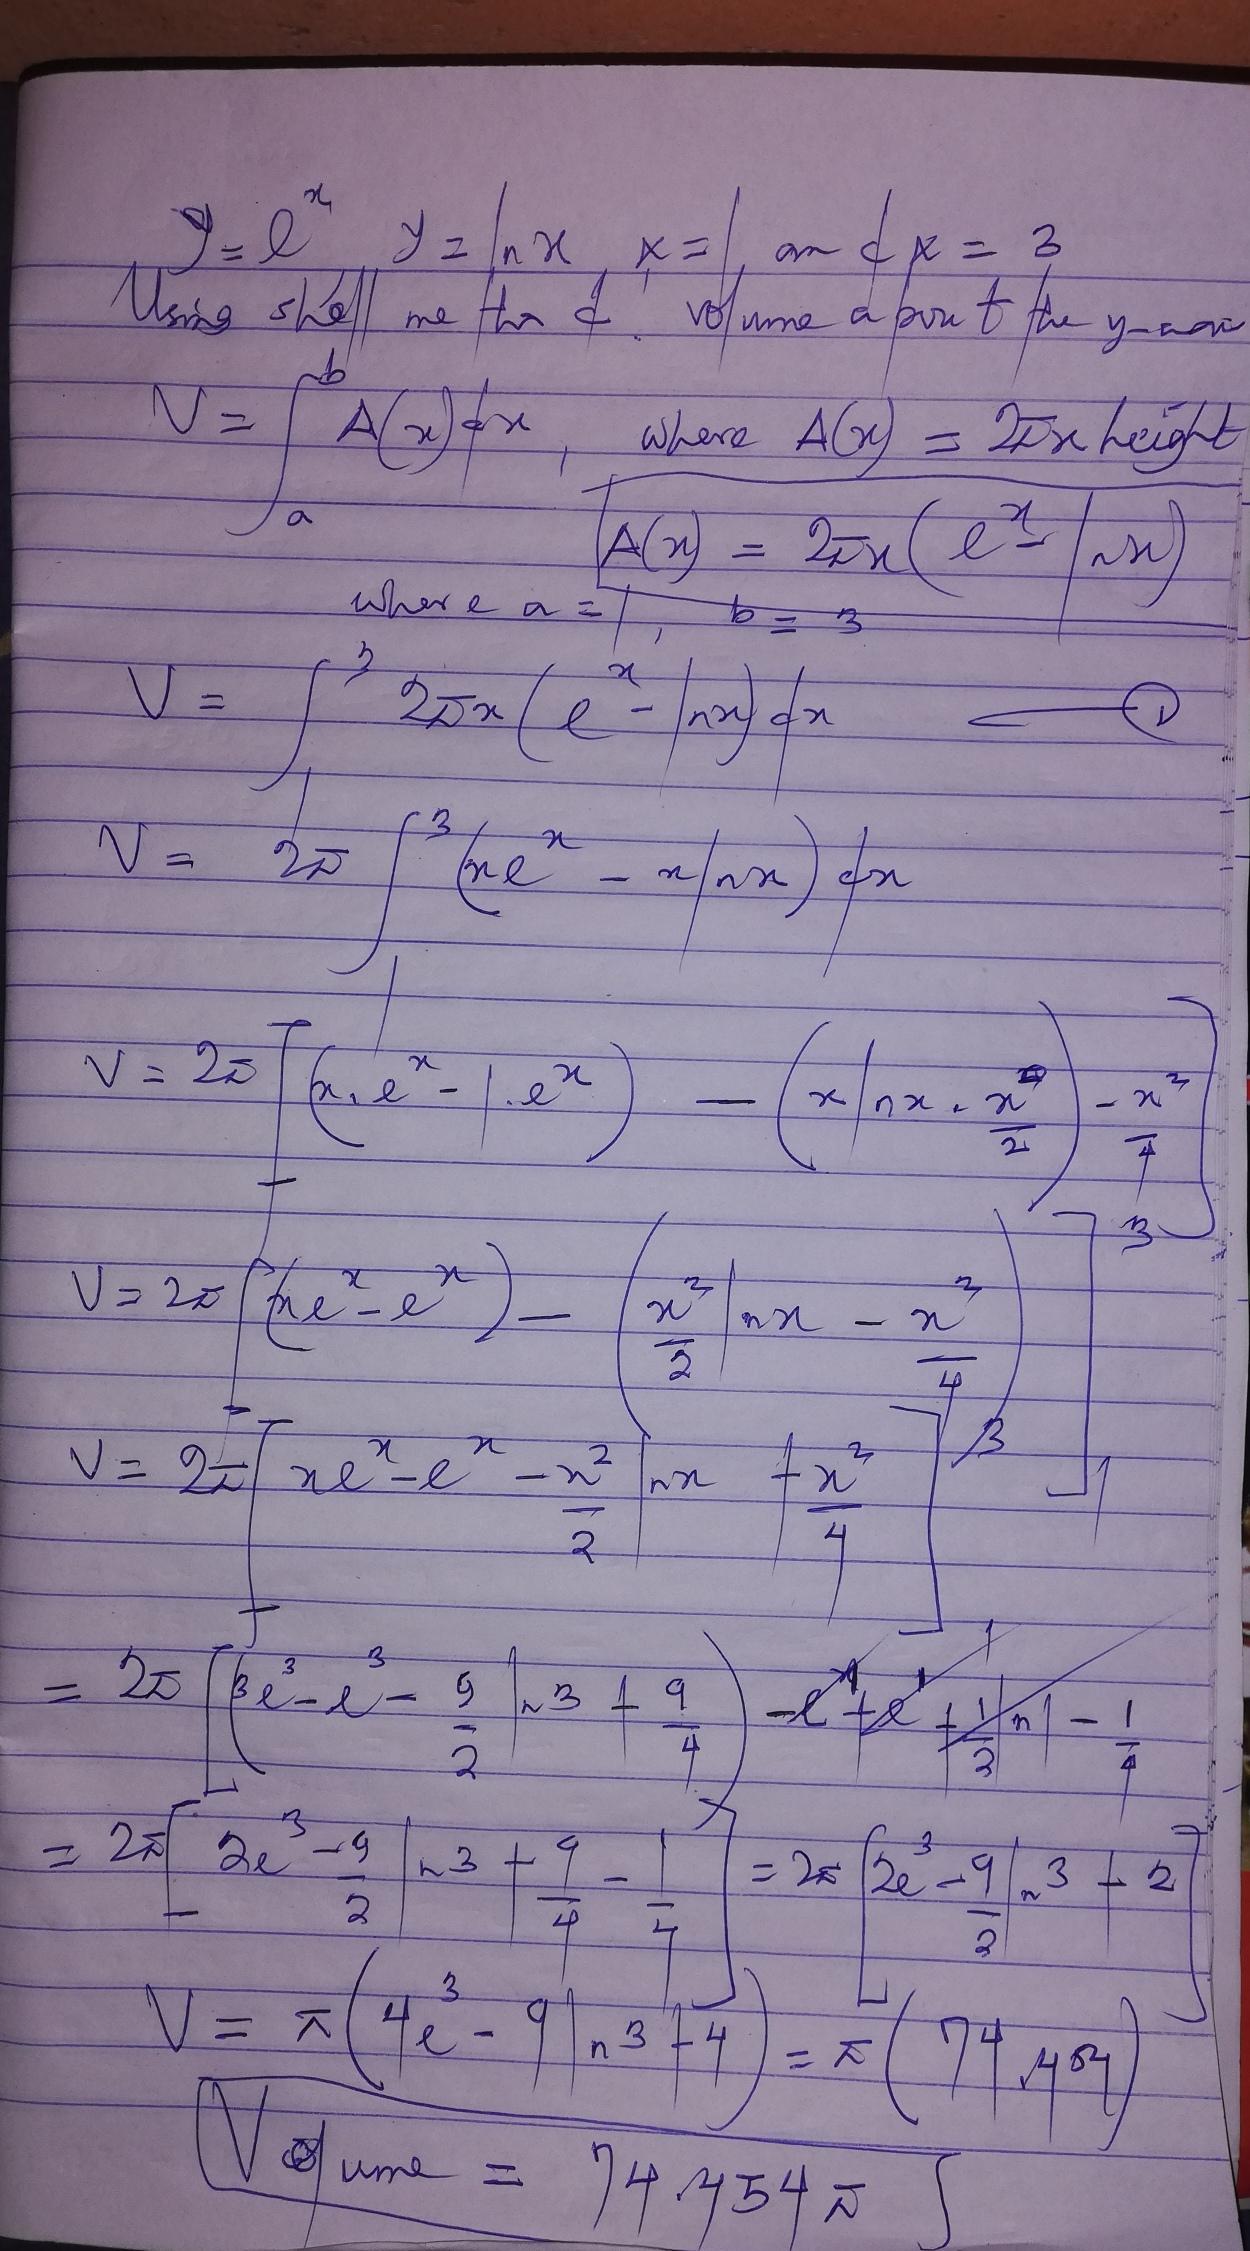 y = e^x y = ln x, x = 1 and x = 3
Using shell method. volume about the y-axis
V = ∫_a^b A(x) dx, where A(x) = 2πx height
A(x) = 2πx (e^x - ln x)
where a = 1, b = 3
V = ∫_1^3 2πx (e^x - ln x) dx ①
V = 2π ∫_1^3 (xe^x - x ln x) dx
V = 2π [(x.e^x - 1.e^x) - (x ln x . x^2/2) - x^2/4]
V = 2π [(xe^x - e^x) - (x^2/2 ln x - x^2/4)]_1^3
V = 2π [xe^x - e^x - x^2/2 ln x + x^2/4]_1^3
= 2π [(3e^3 - e^3 - 9/2 ln 3 + 9/4) - e^1 + e^1 + 1/2 ln 1 - 1/4
= 2π [2e^3 - 9/2 ln 3 + 9/4 - 1/4] = 2π [2e^3 - 9/2 ln 3 + 2]
V = π (4e^3 - 9 ln 3 + 4) = π (74.454)
Volume = 74.454π